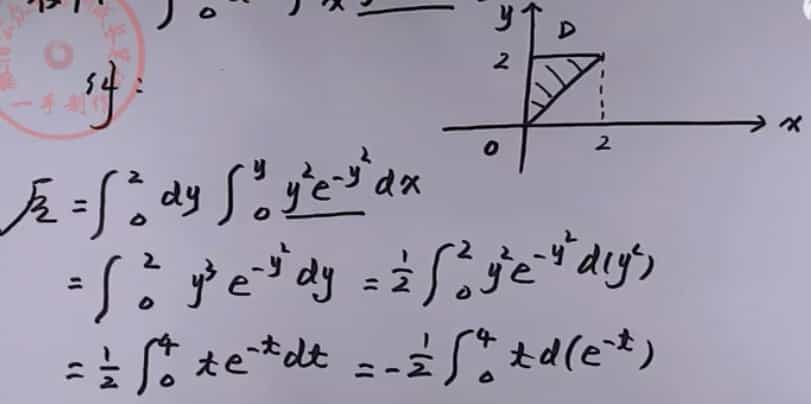 ∫₀ x
y D
2
解:
0 2 x
原 = ∫₀² dy ∫₀^y y²e^{-y²} dx
= ∫₀² y³ e^{-y²} dy = ½ ∫₀² y² e^{-y²} d(y²)
= ½ ∫₀⁴ t e^{-t} dt = -½ ∫₀⁴ t d(e^{-t})